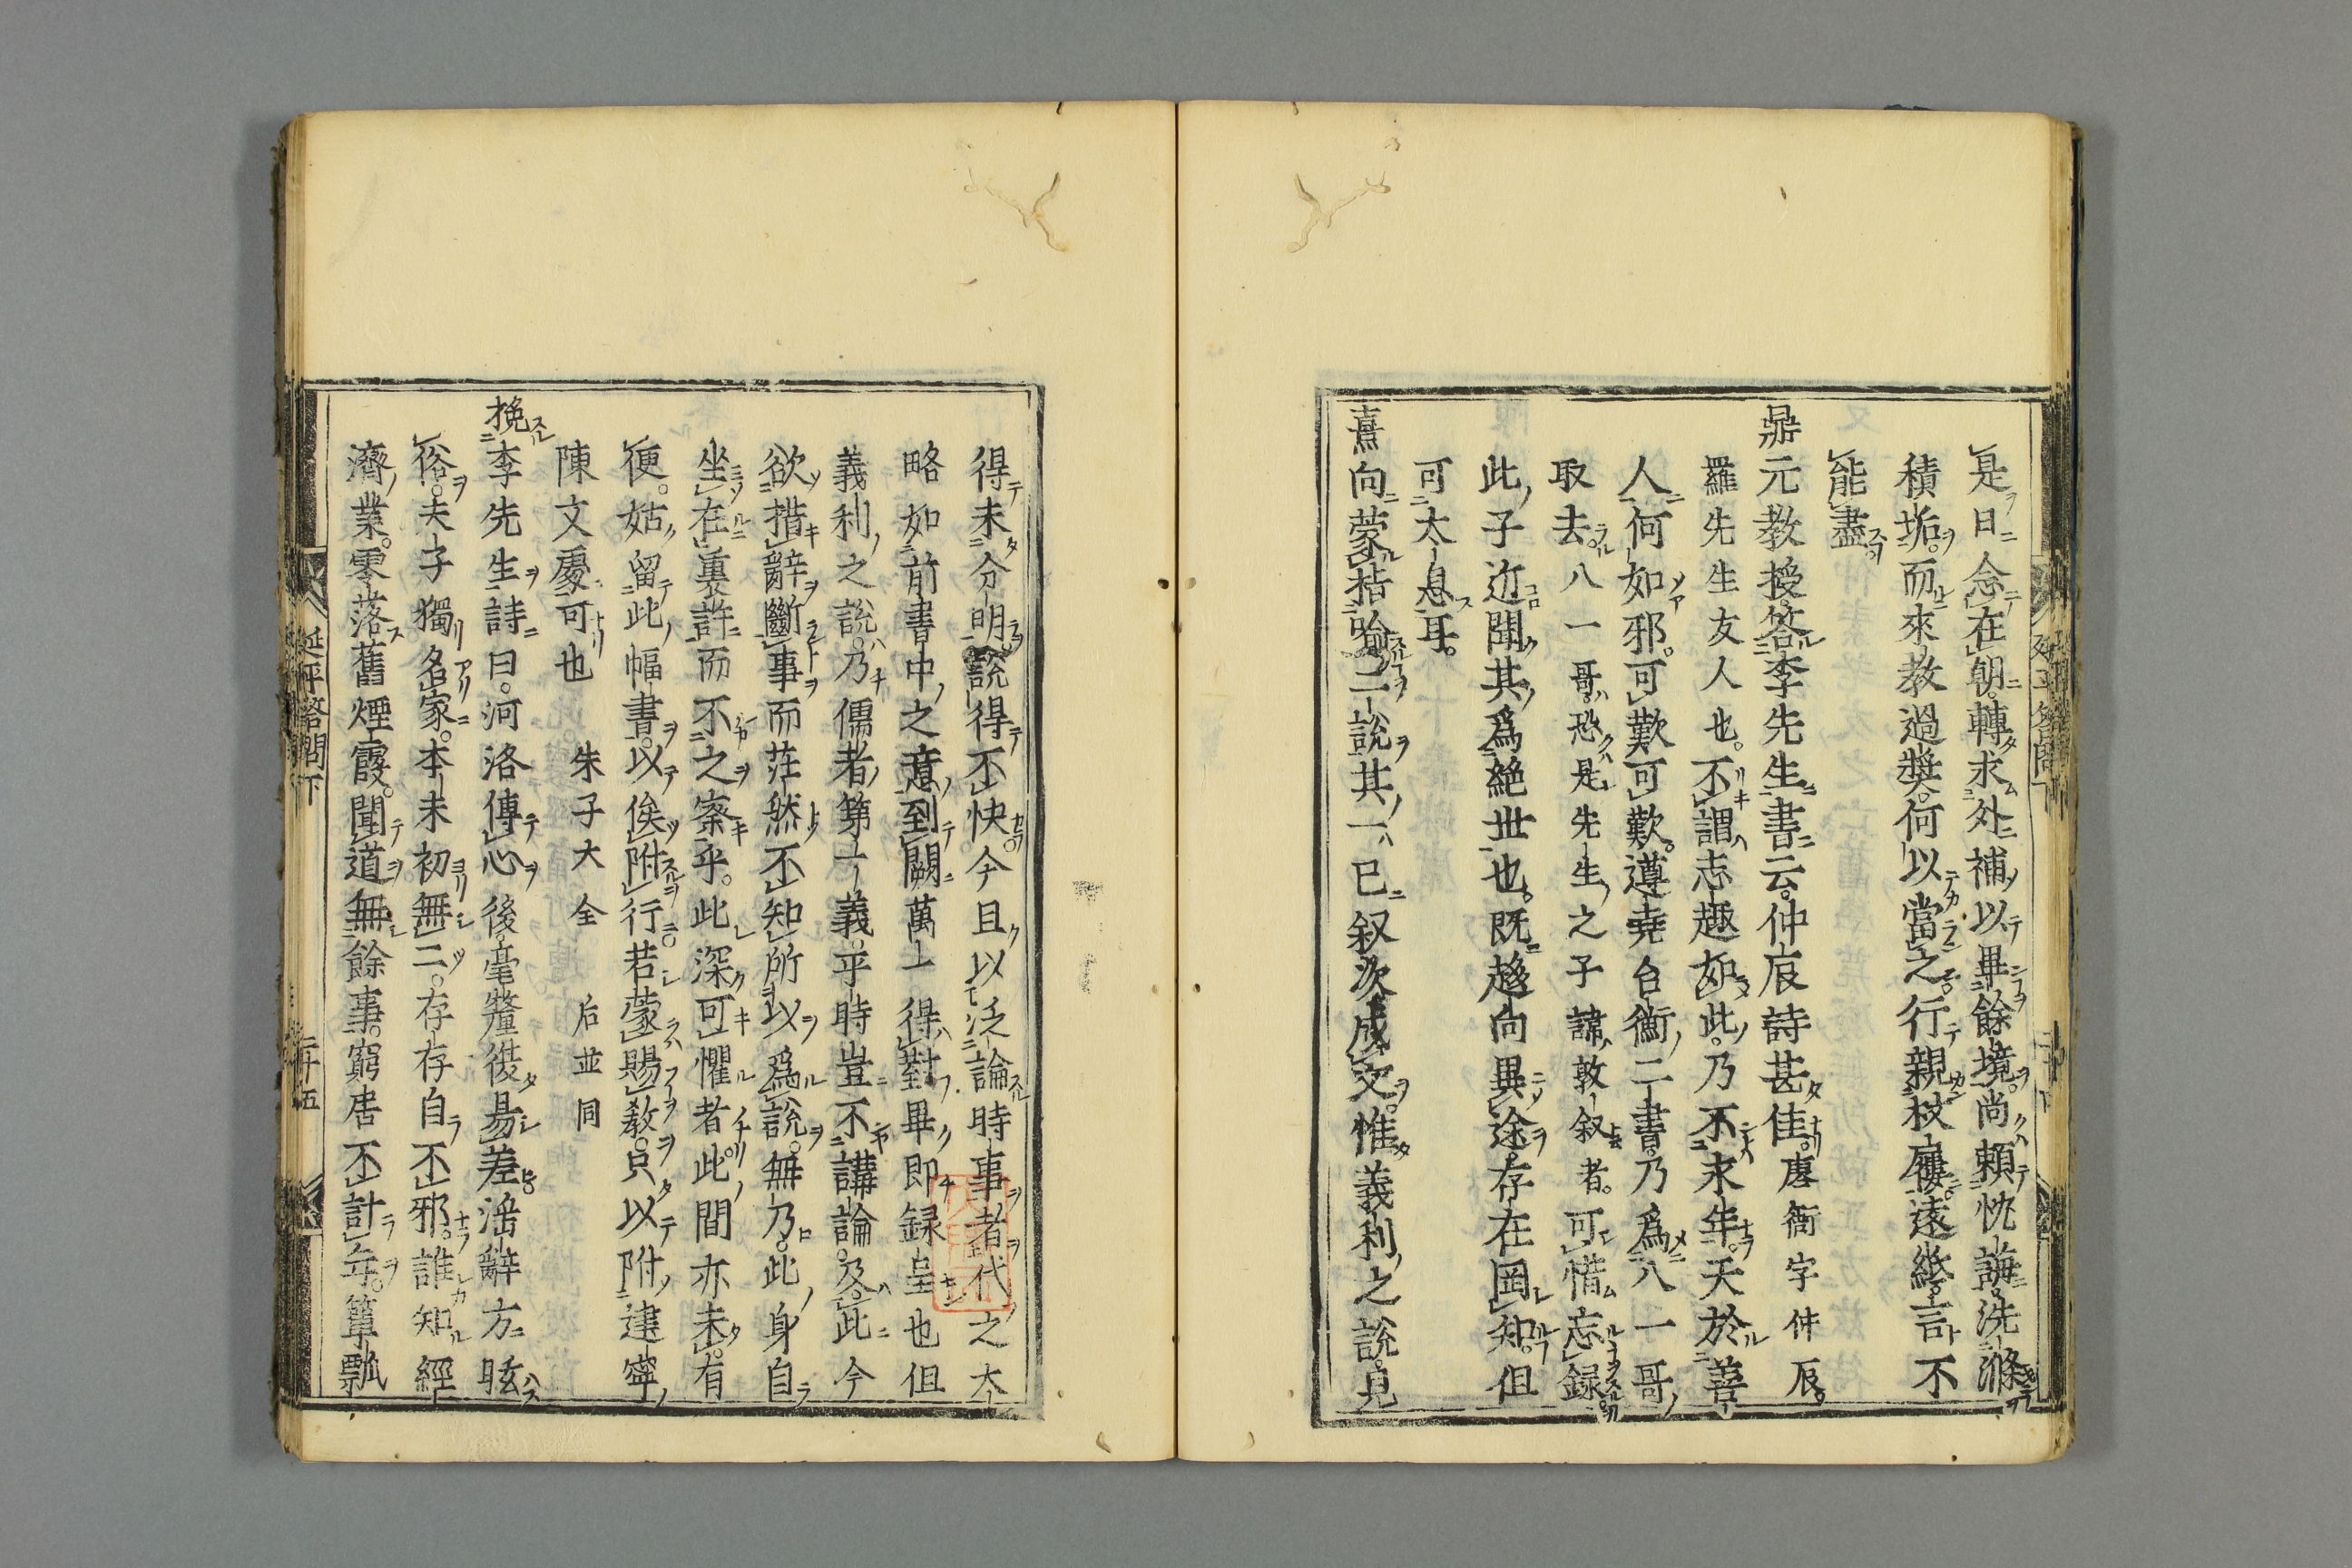 是日念在朝。轉求外補以畢餘境。尚頼忱誨。洗滌
積垢。而來教過奨。何以當之。行親杖屨。遠紙。言不
能盡
羆元教授。答李先生書云。仲㡳詩甚佳。唐衛字仲㡳。
羅先生友人也。不謂志趣如此。乃不永年。天於善
人何如邪。可歎可歎。遵堯台衡二書。乃爲八一哥
取去。八一哥。恐是先生之子諱敦叙者。可惜忘録
此子近聞其爲絶世也。既趍向異途。存在罔知。但
可太息耳。
熹向蒙指喩二說。其一已叙次成文。惟義利之說。見
得未分明。說得不快。今且以泛論時事者代之。大
略如前書中之意。到闕萬一得對畢。即録呈也。但
義利之說。乃儒者第一義。平時豈不講論。及此今
欲措辭斷事而茫然不知所以爲說。無乃此身自
坐在裏許而不之察乎。此深可懼者。此間亦未有
便。姑留此幅書。以俟附行。若蒙賜教。只以附建寧
陳文處可也　朱子大全　后並同
挽李先生詩曰。河洛傳心後。毫釐復易差。淫辭方眩
俗。夫子獨名家。本未初無二。存存自不邪。誰知經
濟業。零落舊煙霞。聞道無餘事。窮居不計年。簞瓢
延平答問下
二十五
延平答問下